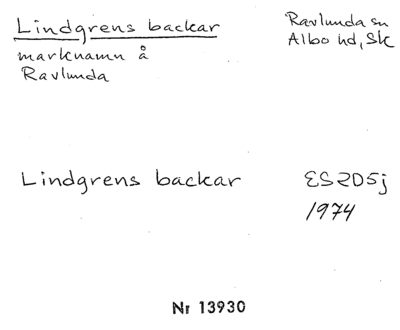 Lindgrens backar
marknamn å
Ravlunda
Ravlunda sn
Albo hd, Sk
Lindgrens backar
ES2D5j
1974
Nr 13930